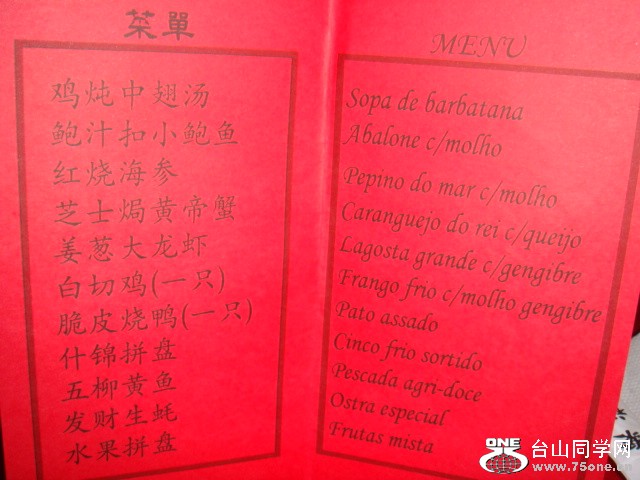 菜單
鸡炖中翅汤
鲍汁扣小鲍鱼
红烧海参
芝士焗黄帝蟹
姜葱大龙虾
白切鸡(一只)
脆皮烧鸭(一只)
什锦拼盘
五柳黄鱼
发财生蚝
水果拼盘
MENU
Sopa de barbatana
Abalone c/molho
Pepino do mar c/molho
Caranguejo do rei c/queijo
Lagosta grande c/gengibre
Frango frio c/molho gengibre
Pato assado
Cinco frio sortido
Pescada agri-doce
Ostra especial
Frutas mista
ONE
台山同学网
www.75one.cn